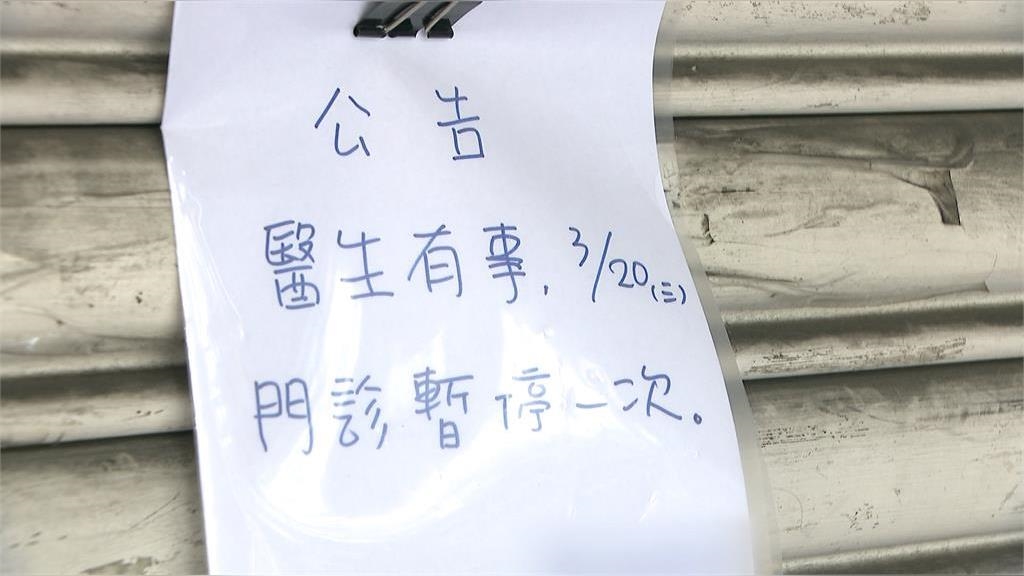 公告
醫生有事. 3/20(三)
門診暫停一次。